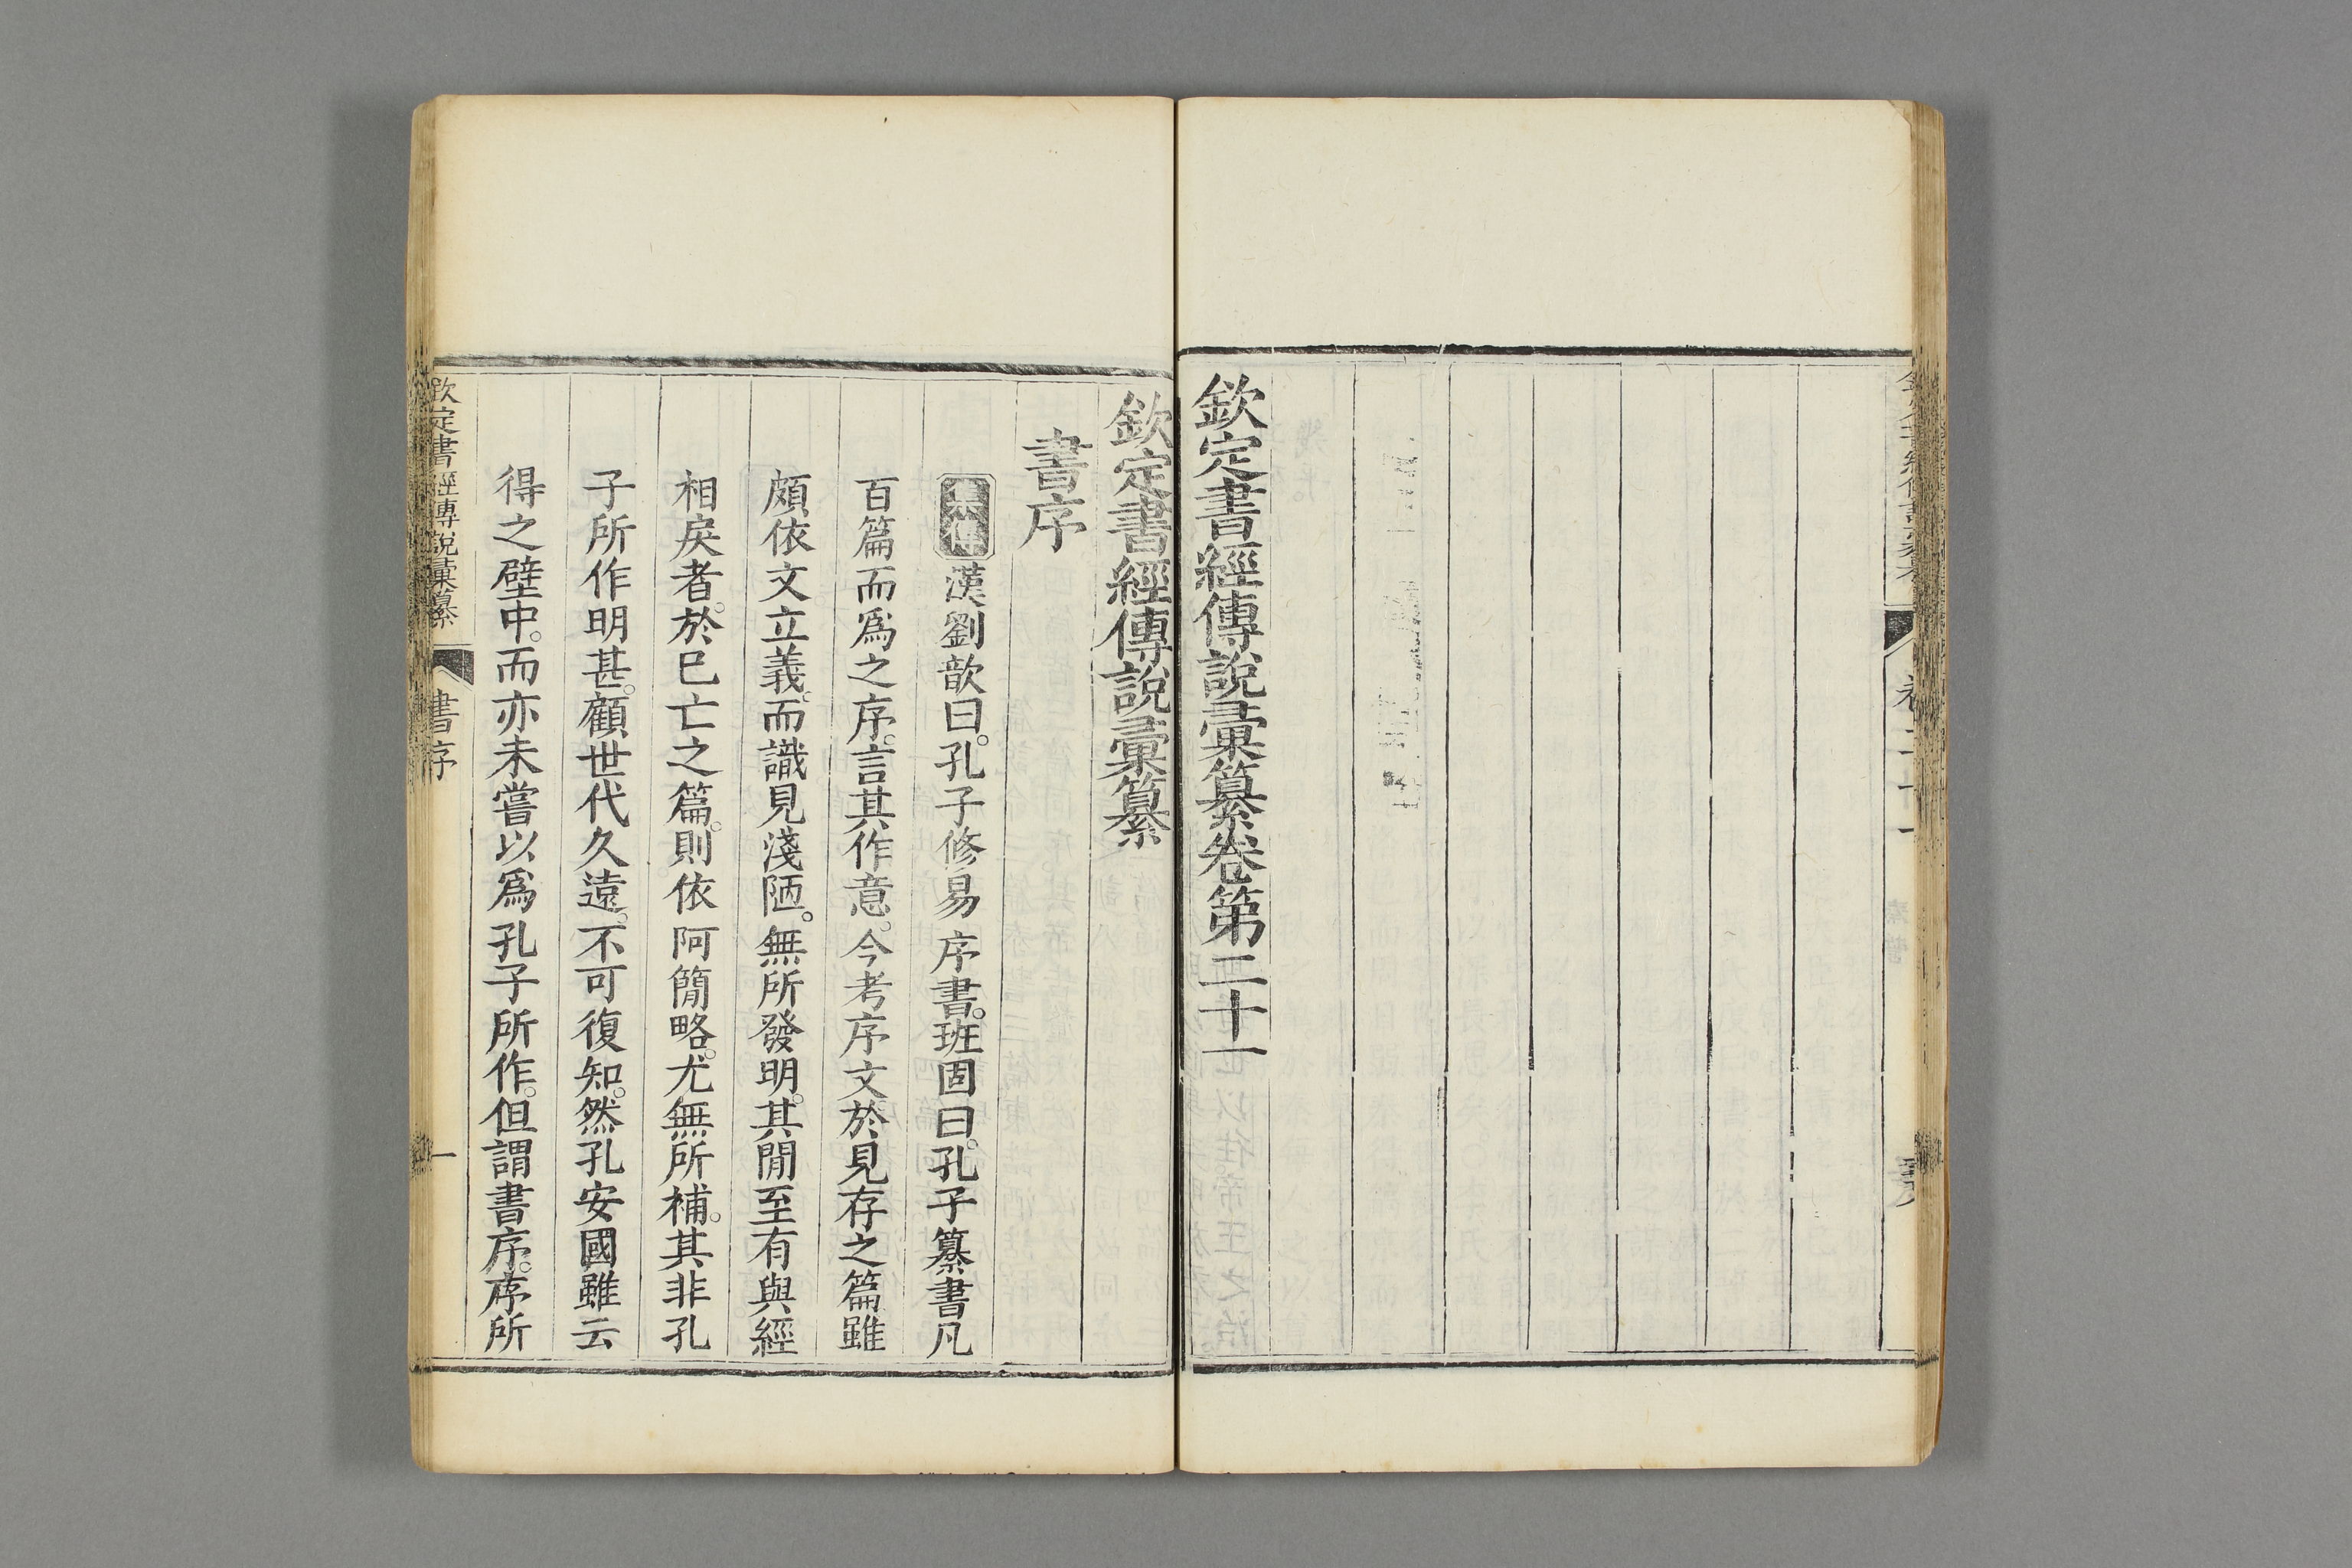 欽定書經傳說彙纂卷第二十一
欽定書經傳說彙纂
書序
集傳漢劉歆曰。孔子修易序書。班固曰。孔子纂書凡
百篇而爲之序。言其作意。今考序文於見存之篇雖
頗依文立義。而識見淺陋。無所發明。其閒至有與經
相戾者。於已亡之篇。則依阿簡略。尤無所補。其非孔
子所作明甚。顧世代久遠。不可復知。然孔安國雖云
得之壁中。而亦未嘗以爲孔子所作。但謂書序。序所
欽定書經傳說彙纂
書序
一